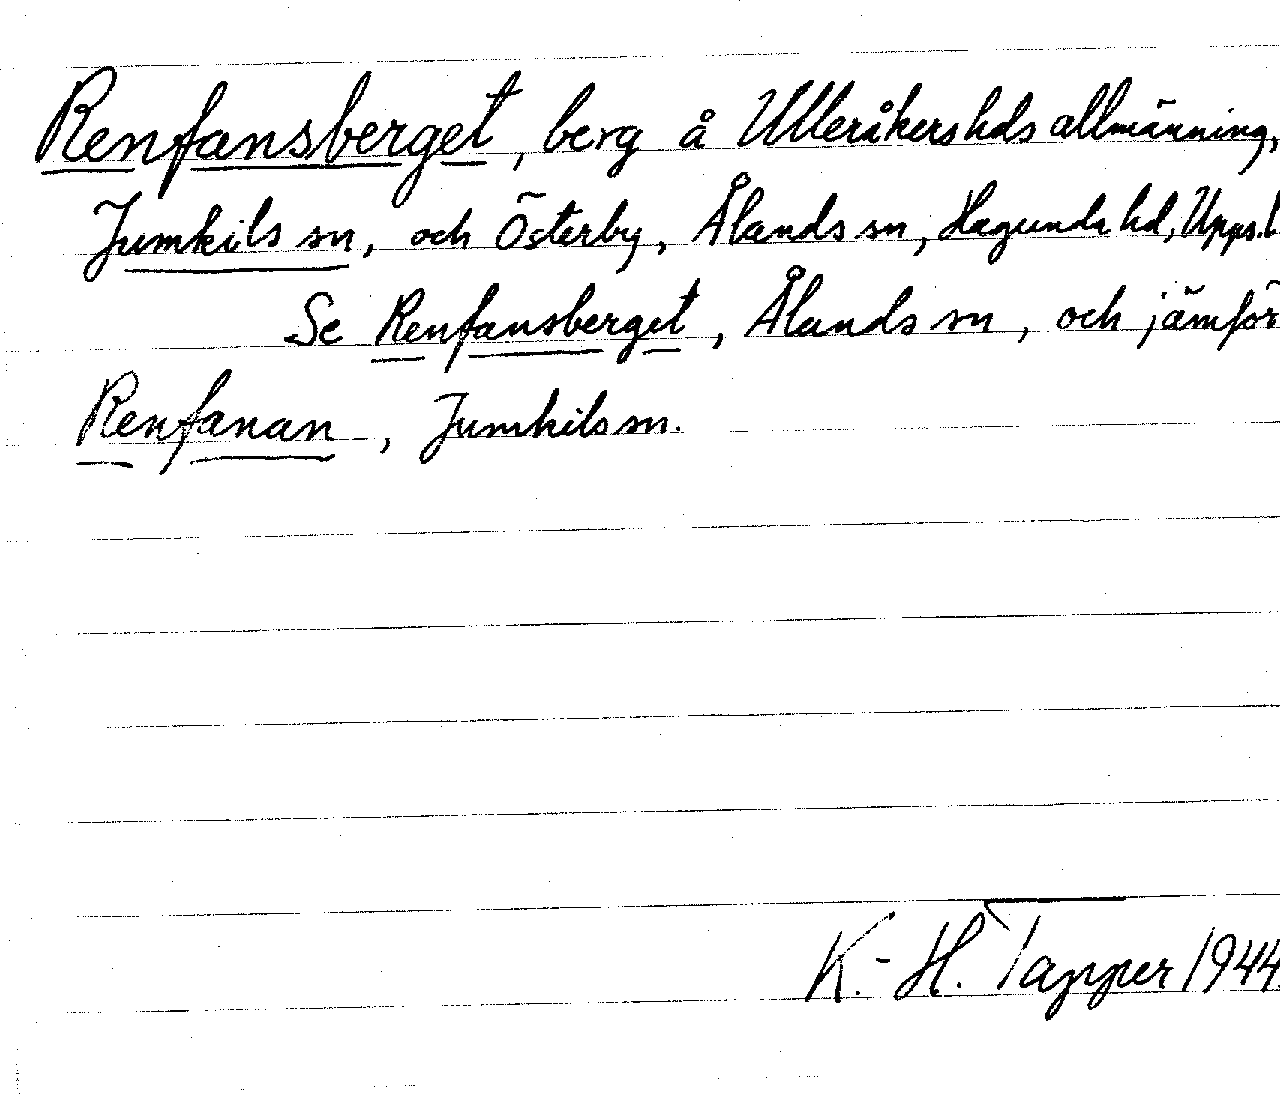 Renfansberget, berg å Ulleråkers hds allmänning,
Jumkils sn, och Österby, Ålands sn, Hagunda hd, Upps. l
Se Renfansberget, Ålands sn, och jämför
Renfanan, Jumkils sn.
K.-H. Tapper 1944.